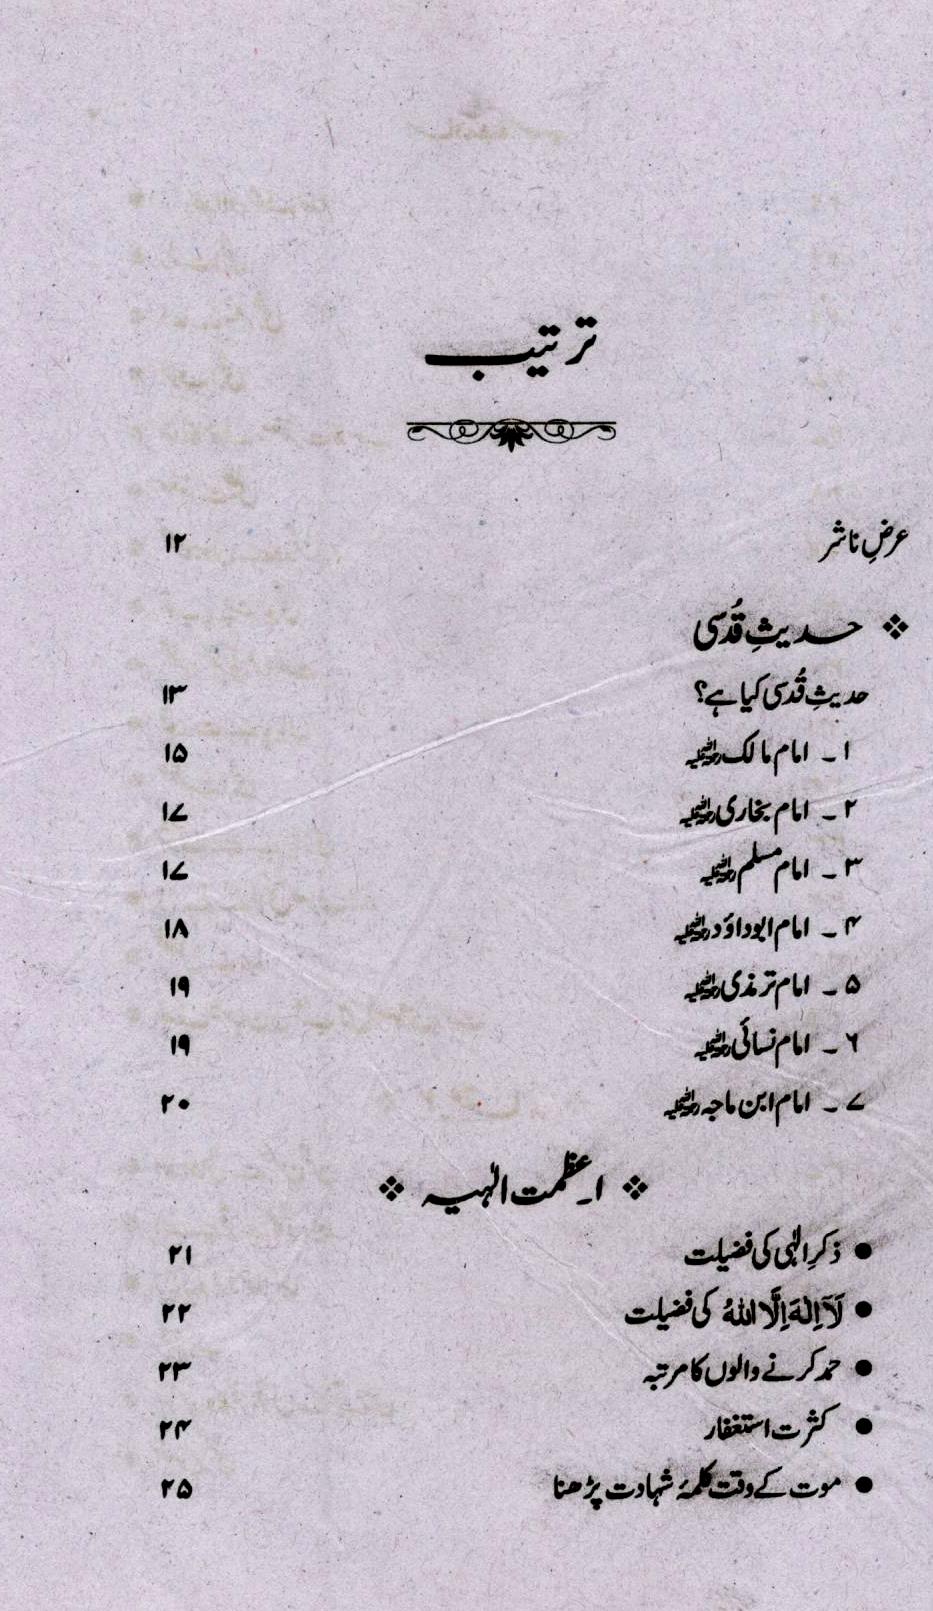 ترتیب
عرضِ ناشر ۱۲
❖ حدیثِ قُدسی
حدیثِ قُدسی کیا ہے؟ ۱۳
۱ ۔ امام مالک رحمۃ اللہ علیہ ۱۵
۲ ۔ امام بخاری رحمۃ اللہ علیہ ۱۷
۳ ۔ امام مسلم رحمۃ اللہ علیہ ۱۷
۴ ۔ امام ابوداؤد رحمۃ اللہ علیہ ۱۸
۵ ۔ امام ترمذی رحمۃ اللہ علیہ ۱۹
۶ ۔ امام نسائی رحمۃ اللہ علیہ ۱۹
۷ ۔ امام ابن ماجہ رحمۃ اللہ علیہ ۲۰
❖ ا۔ عظمت الٰہیہ ❖
● ذکرِ الٰہی کی فضیلت ۲۱
● لَآ اِلٰهَ اِلَّا اللهُ کی فضیلت ۲۲
● حمد کرنے والوں کا مرتبہ ۲۳
● کثرت استغفار ۲۴
● موت کے وقت کلمۂ شہادت پڑھنا ۲۵